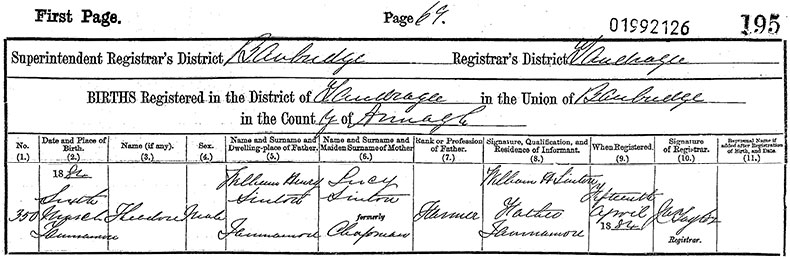 First Page. Page 69. 01992126 195
Superintendent Registrar's District Banbridge Registrar's District Tandragee
BIRTHS Registered in the District of Tandragee in the Union of Banbridge
in the County of Armagh
No. (1.) Date and Place of Birth. (2.) Name (if any). (3.) Sex. (4.) Name and Surname and Dwelling-place of Father. (5.) Name and Surname and Maiden Surname of Mother (6.) Rank or Profession of Father. (7.) Signature, Qualification, and Residence of Informant. (8.) When Registered. (9.) Signature of Registrar. (10.) Baptismal Name if added after Registration of Birth, and Date. (11.)
1884
Sixth William Henry Lucy William H Sinton Fifteenth
350 March Theodore Male Sinton Sinton Farmer Father April Taylor
Tamnamore Tamnamore formerly Chapman Tamnamore 1884 Registrar.